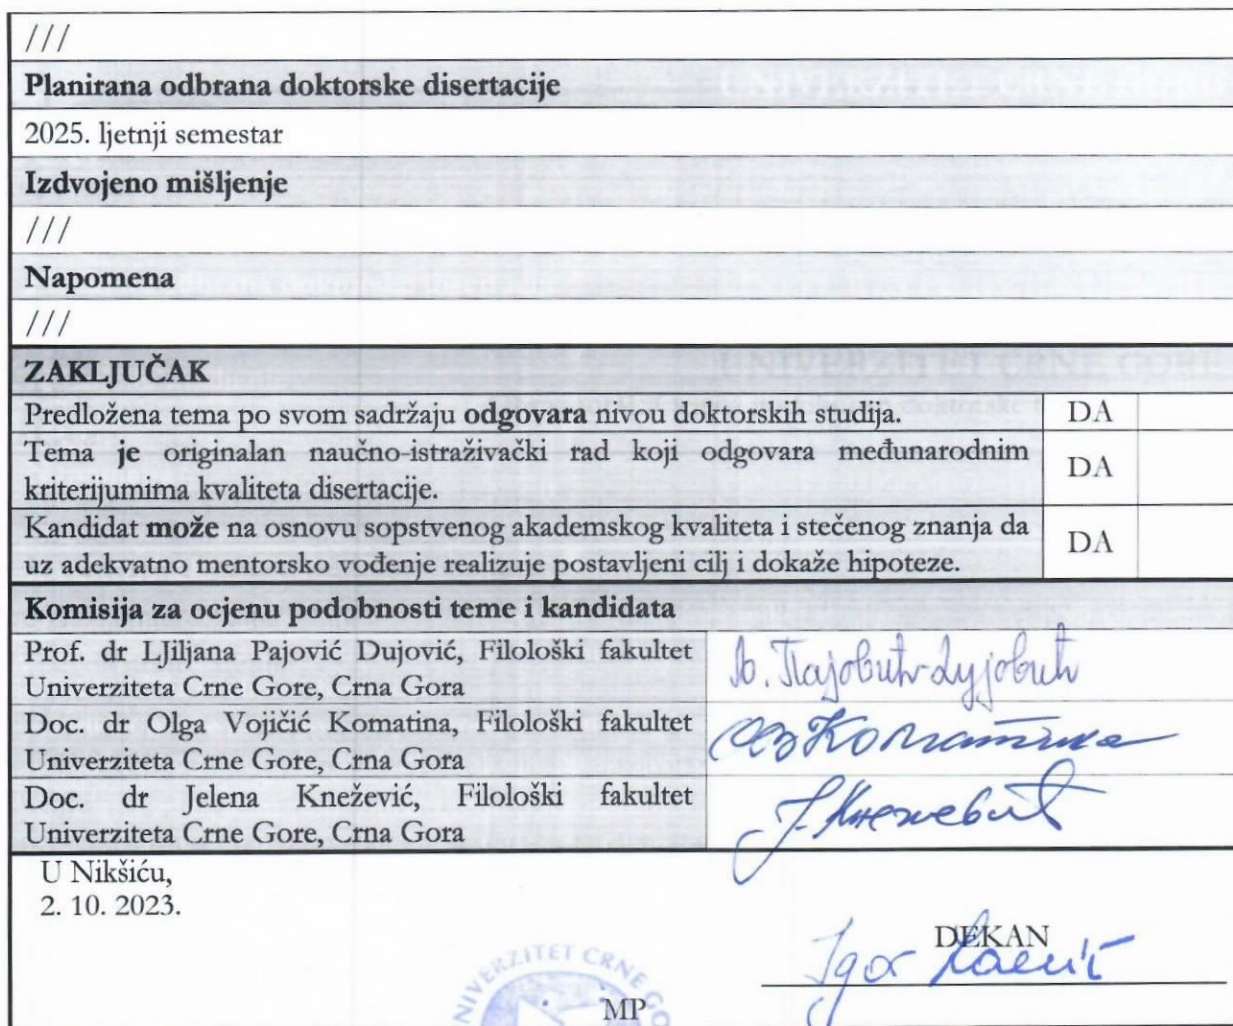 ///
Planirana odbrana doktorske disertacije
2025. ljetnji semestar
Izdvojeno mišljenje
///
Napomena
///
ZAKLJUČAK
Predložena tema po svom sadržaju odgovara nivou doktorskih studija. DA
Tema je originalan naučno-istraživački rad koji odgovara međunarodnim
kriterijumima kvaliteta disertacije. DA
Kandidat može na osnovu sopstvenog akademskog kvaliteta i stečenog znanja da
uz adekvatno mentorsko vođenje realizuje postavljeni cilj i dokaže hipoteze. DA
Komisija za ocjenu podobnosti teme i kandidata
Prof. dr LJiljana Pajović Dujović, Filološki fakultet
Univerziteta Crne Gore, Crna Gora
Љ. Пајовић-Дујовић
Doc. dr Olga Vojičić Komatina, Filološki fakultet
Univerziteta Crne Gore, Crna Gora
ОВКоматина
Doc. dr Jelena Knežević, Filološki fakultet
Univerziteta Crne Gore, Crna Gora
Ј. Кнежевић
U Nikšiću,
2. 10. 2023.
DEKAN
Igor
MP